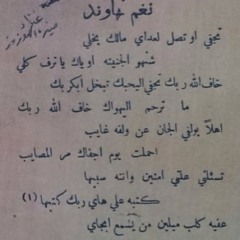 نغم نهاوند
تجفي او تصل لعداي مالك يخلي
شنهو الجنيته اوياك يا ترف كلي
خاف الله ربك تجفي اليحبك تبخل ابكربك
ما ترحم اليهواك خاف الله ربك
اهلاً يولفي الجان عن ولفه غايب
احملت يوم اجفاك مر المصايب
تسئلني علتي امنين وانته سببها
كتبه علي هاي ربك كتبها (١)
عفيه كلب ميلين من يسمع ابجاي